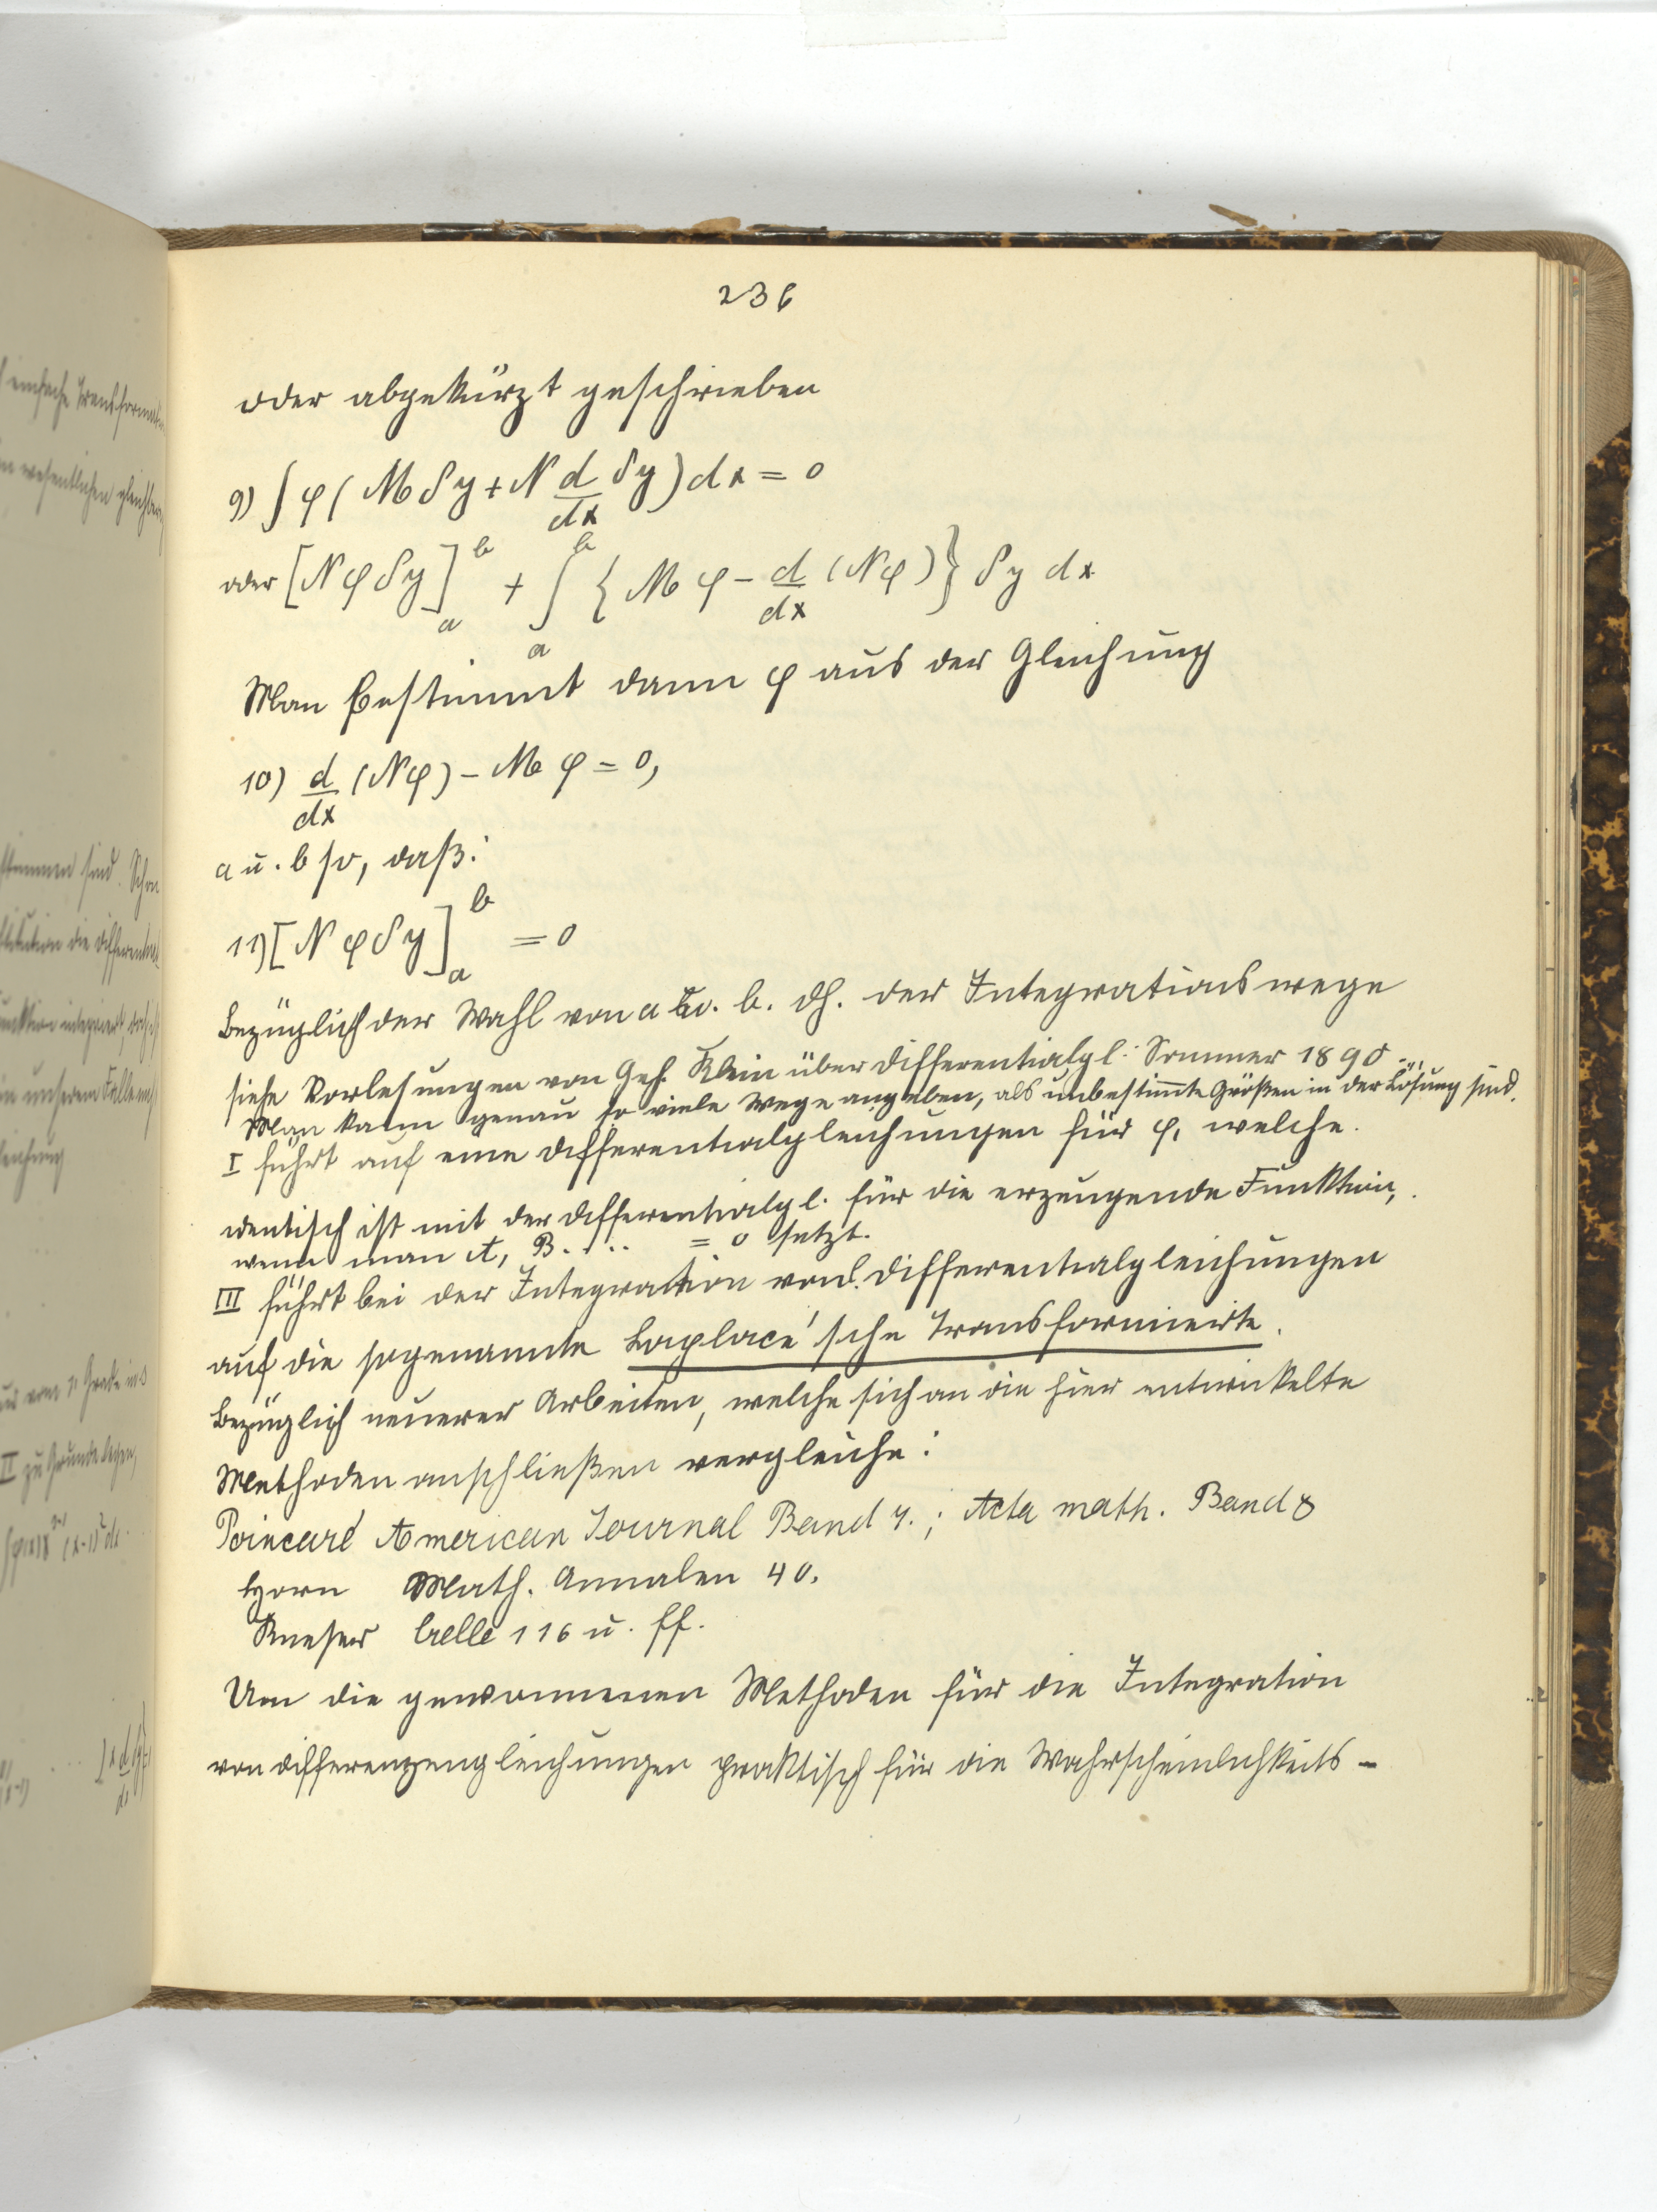 236
oder abgekürzt geschrieben
9) ∫ φ ( M δy + N d/dx δy ) dx = 0
oder [N φ δy]_a^b + ∫_a^b { M φ − d/dx (N φ) } δy dx
Man bestimmt dann φ aus der Gleichung
10) d/dx (N φ) − M φ = 0,
a u. b so, daß:
11) [N φ δy]_a^b = 0
Bezüglich der Wahl von a u. b. dh. der Integrationswege
siehe Vorlesungen von Geh. Klein über Differentialgl. Sommer 1890.
Man kann genau so viele Wege angeben, als unbestimmte Größen in der Lösung sind.
I führt auf eine Differentialgleichungen für φ, welche
identisch ist mit der Differentialgl. für die erzeugende Funktion,
wenn man A, B.... = 0 setzt.
III führt bei der Integration von l. Differentialgleichungen
auf die sogenannte Laplace'sche Transformierte.
Bezüglich neuerer Arbeiten, welche sich an die hier entwickelte
Methoden anschließen vergleiche:
Poincaré American Journal Band 7.; Acta math. Band 8
Horn Math. Annalen 40.
Kneser Crelle 116 u. ff.
Um die gewonnenen Methoden für die Integration
von Differenzengleichungen praktisch für die Wahrscheinlichkeits-